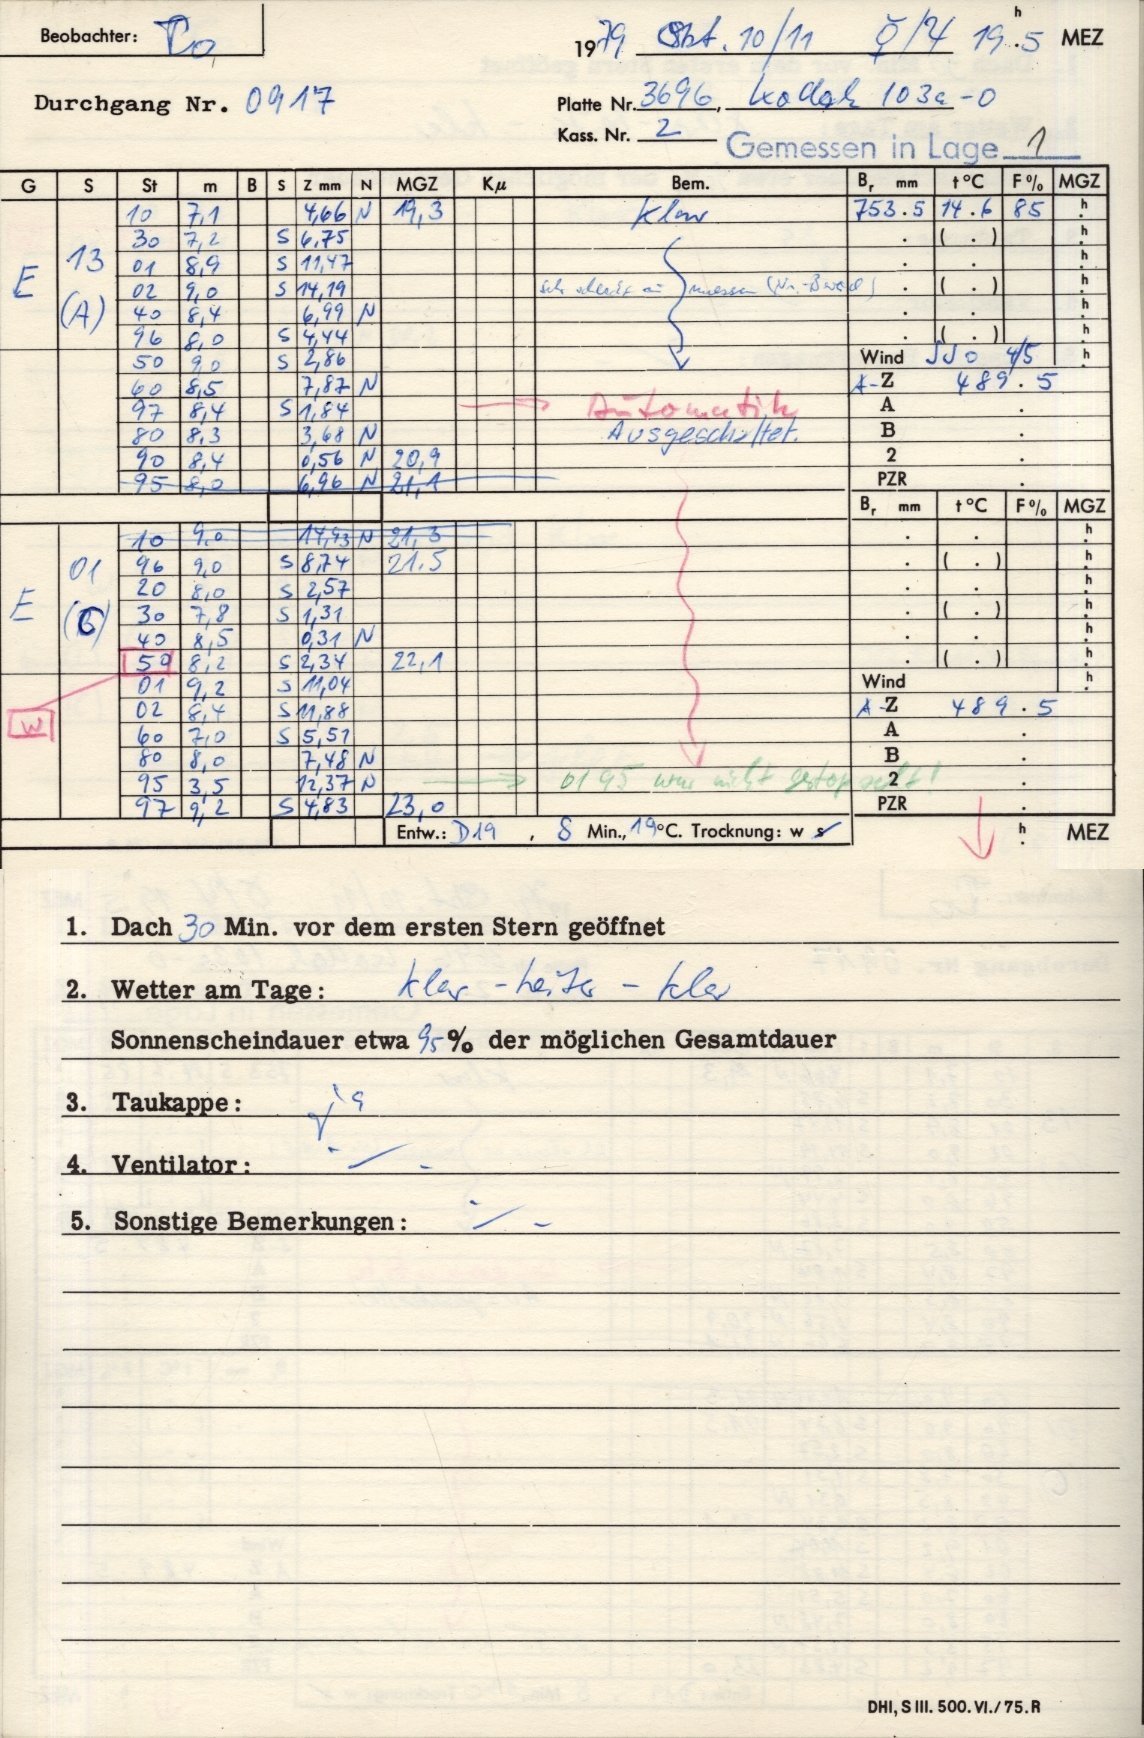 Beobachter: To
1979 Okt. 10/11 ☿/♃ 19.5 h MEZ
Durchgang Nr. 0917
Platte Nr. 3696, Kodak 103a-O
Kass. Nr. 2
Gemessen in Lage 1
G S St m B S Z mm N MGZ Kμ Bem. Br mm t°C F% MGZ
E 13 (A)
10 7,1 4,66 N 19,3 klar 753.5 14.6 85 h
30 7,2 S 6,75 . ( . )
01 8,9 S 11,47 . . h
02 9,0 S 14,19 . ( . ) h
40 8,4 6,99 N . . h
96 8,0 S 4,44 . ( . ) h
50 9,0 S 2,86 Wind SSO 4/5 h
60 8,5 7,87 N A-Z 489.5
97 8,4 S 1,84 → Automatik A .
80 8,3 3,68 N Ausgeschaltet. B .
90 8,4 0,56 N 20,9 2 .
95 8,0 6,96 N 21,1 PZR .
Br mm t°C F% MGZ
E 01
10 9,0 14,93 N 21,3 . . h
96 9,0 S 8,74 21.5 . ( . ) h
20 8,0 S 2,57 . .
30 7,8 S 1,31 . ( . ) h
40 8,5 0,31 N . . h
50 8,2 S 2,34 22,1 . ( . ) h
01 9,2 S 11,04 Wind h
W 02 8,4 S 11,88 A-Z 489.5
60 7,0 S 5,51 A .
80 8,0 7,48 N B .
95 3,5 12,37 N → 0195 war nicht gestoppelt! 2 .
97 9,2 S 4,83 23,0 PZR .
Entw.: D19, 8 Min., 19°C. Trocknung: w s h . MEZ
1. Dach 30 Min. vor dem ersten Stern geöffnet
2. Wetter am Tage: klar - heiter - klar
Sonnenscheindauer etwa 95% der möglichen Gesamtdauer
3. Taukappe: ja
4. Ventilator: -/-
5. Sonstige Bemerkungen: -/-
DHI, S III. 500. VI./75. R